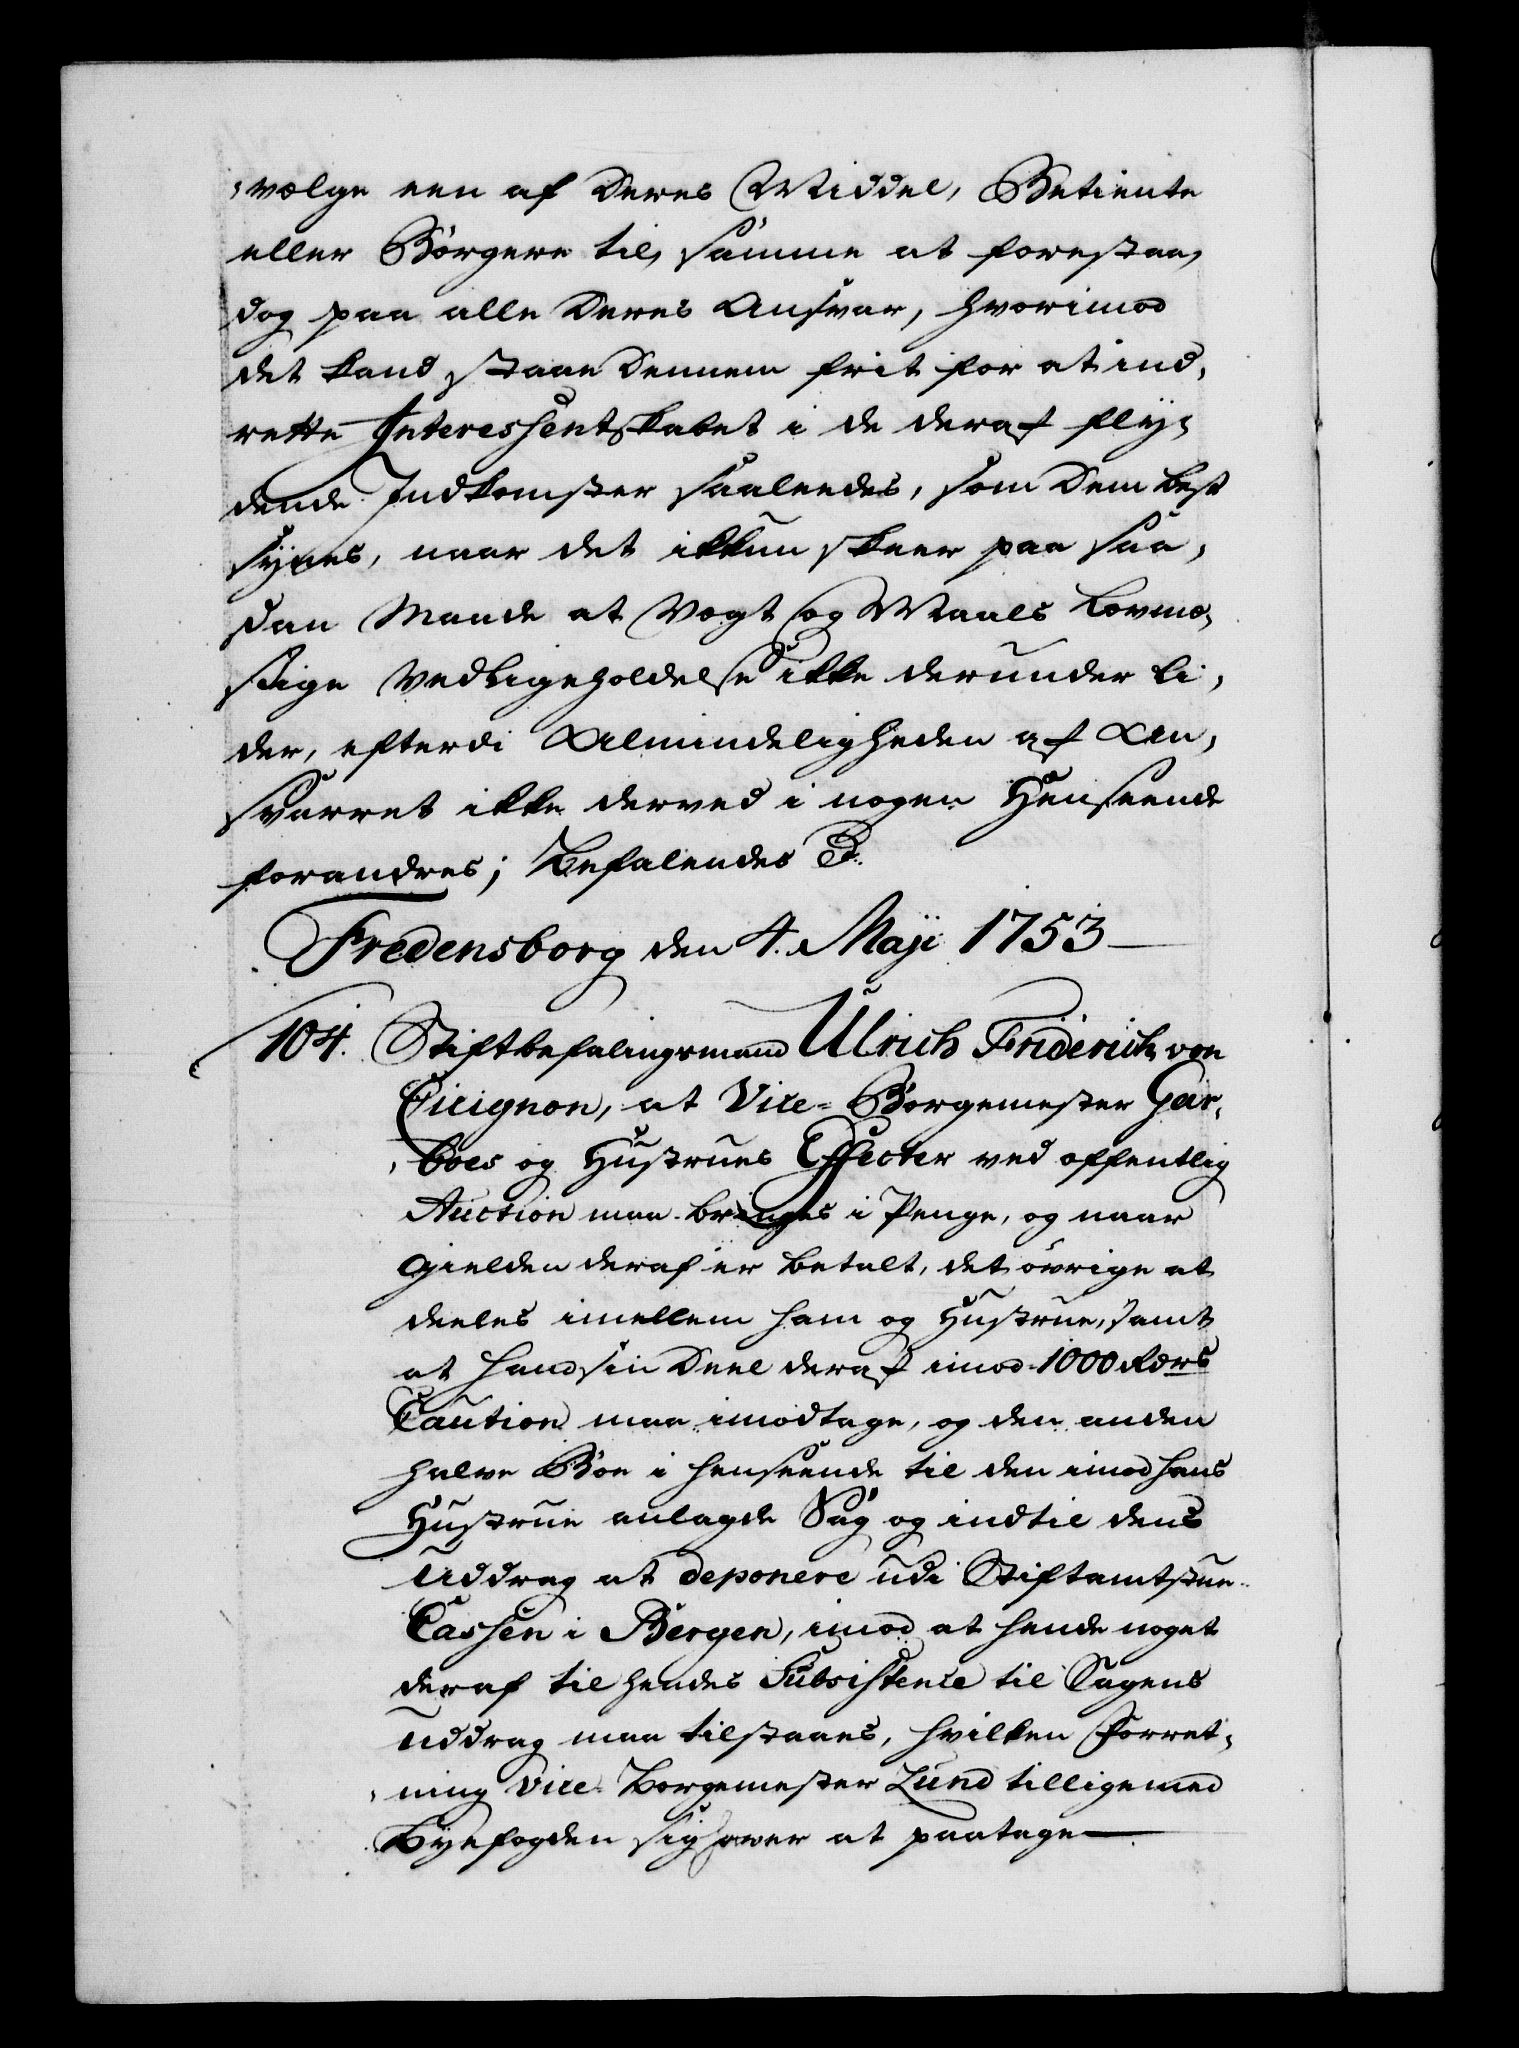 vælge een af deres Middel, Betiente
eller Börgere til, samme at forestaa,
dog paa alle deres Ansvar, hvorimod
det kand staae dennem frit for at ind,
rette Interessentskabet i de deraf flÿ,
dende Indkomster saaleedes, som dem best
sÿnes, naar det ikkun skeer paa saa,
dan Maade at Vegt og Maals Lovmæ,
ssige Vedligeholdelse ikke derunder li,
der, efterdi Almindeligheden af An,
svarret ikke derved i nogen Henseende
forandres; Befalendes &.
Fredensborg den 4. Maji 1753
104. Stiftbefalingsmand Ulrich Friderich von
Cicignon, at Vice-Borgemester Gar,
boes og Hustrues Effecter ved offentlig
Auction maa bringes i Penge, og naar
Gielden deraf er betalt, det övrige at
deeles imellem ham og Hustrue, samt
at hand sin Deel deraf imod 1000 Rdrs
Caution maa imodtage, og den anden
halve Boe i henseende til den imod hans
Hustrue anlagde Sag og indtil dens
Uddrag at deponere udi Stiftamtstue-
Cassen i Bergen, imod at hende noget
deraf til hendes Subsistence til Sagens
Uddrag maa tilstaaes, hvilken Forret,
ning Vice-Borgemester Lund tilligemed
Bÿefogden sig haver at paatage